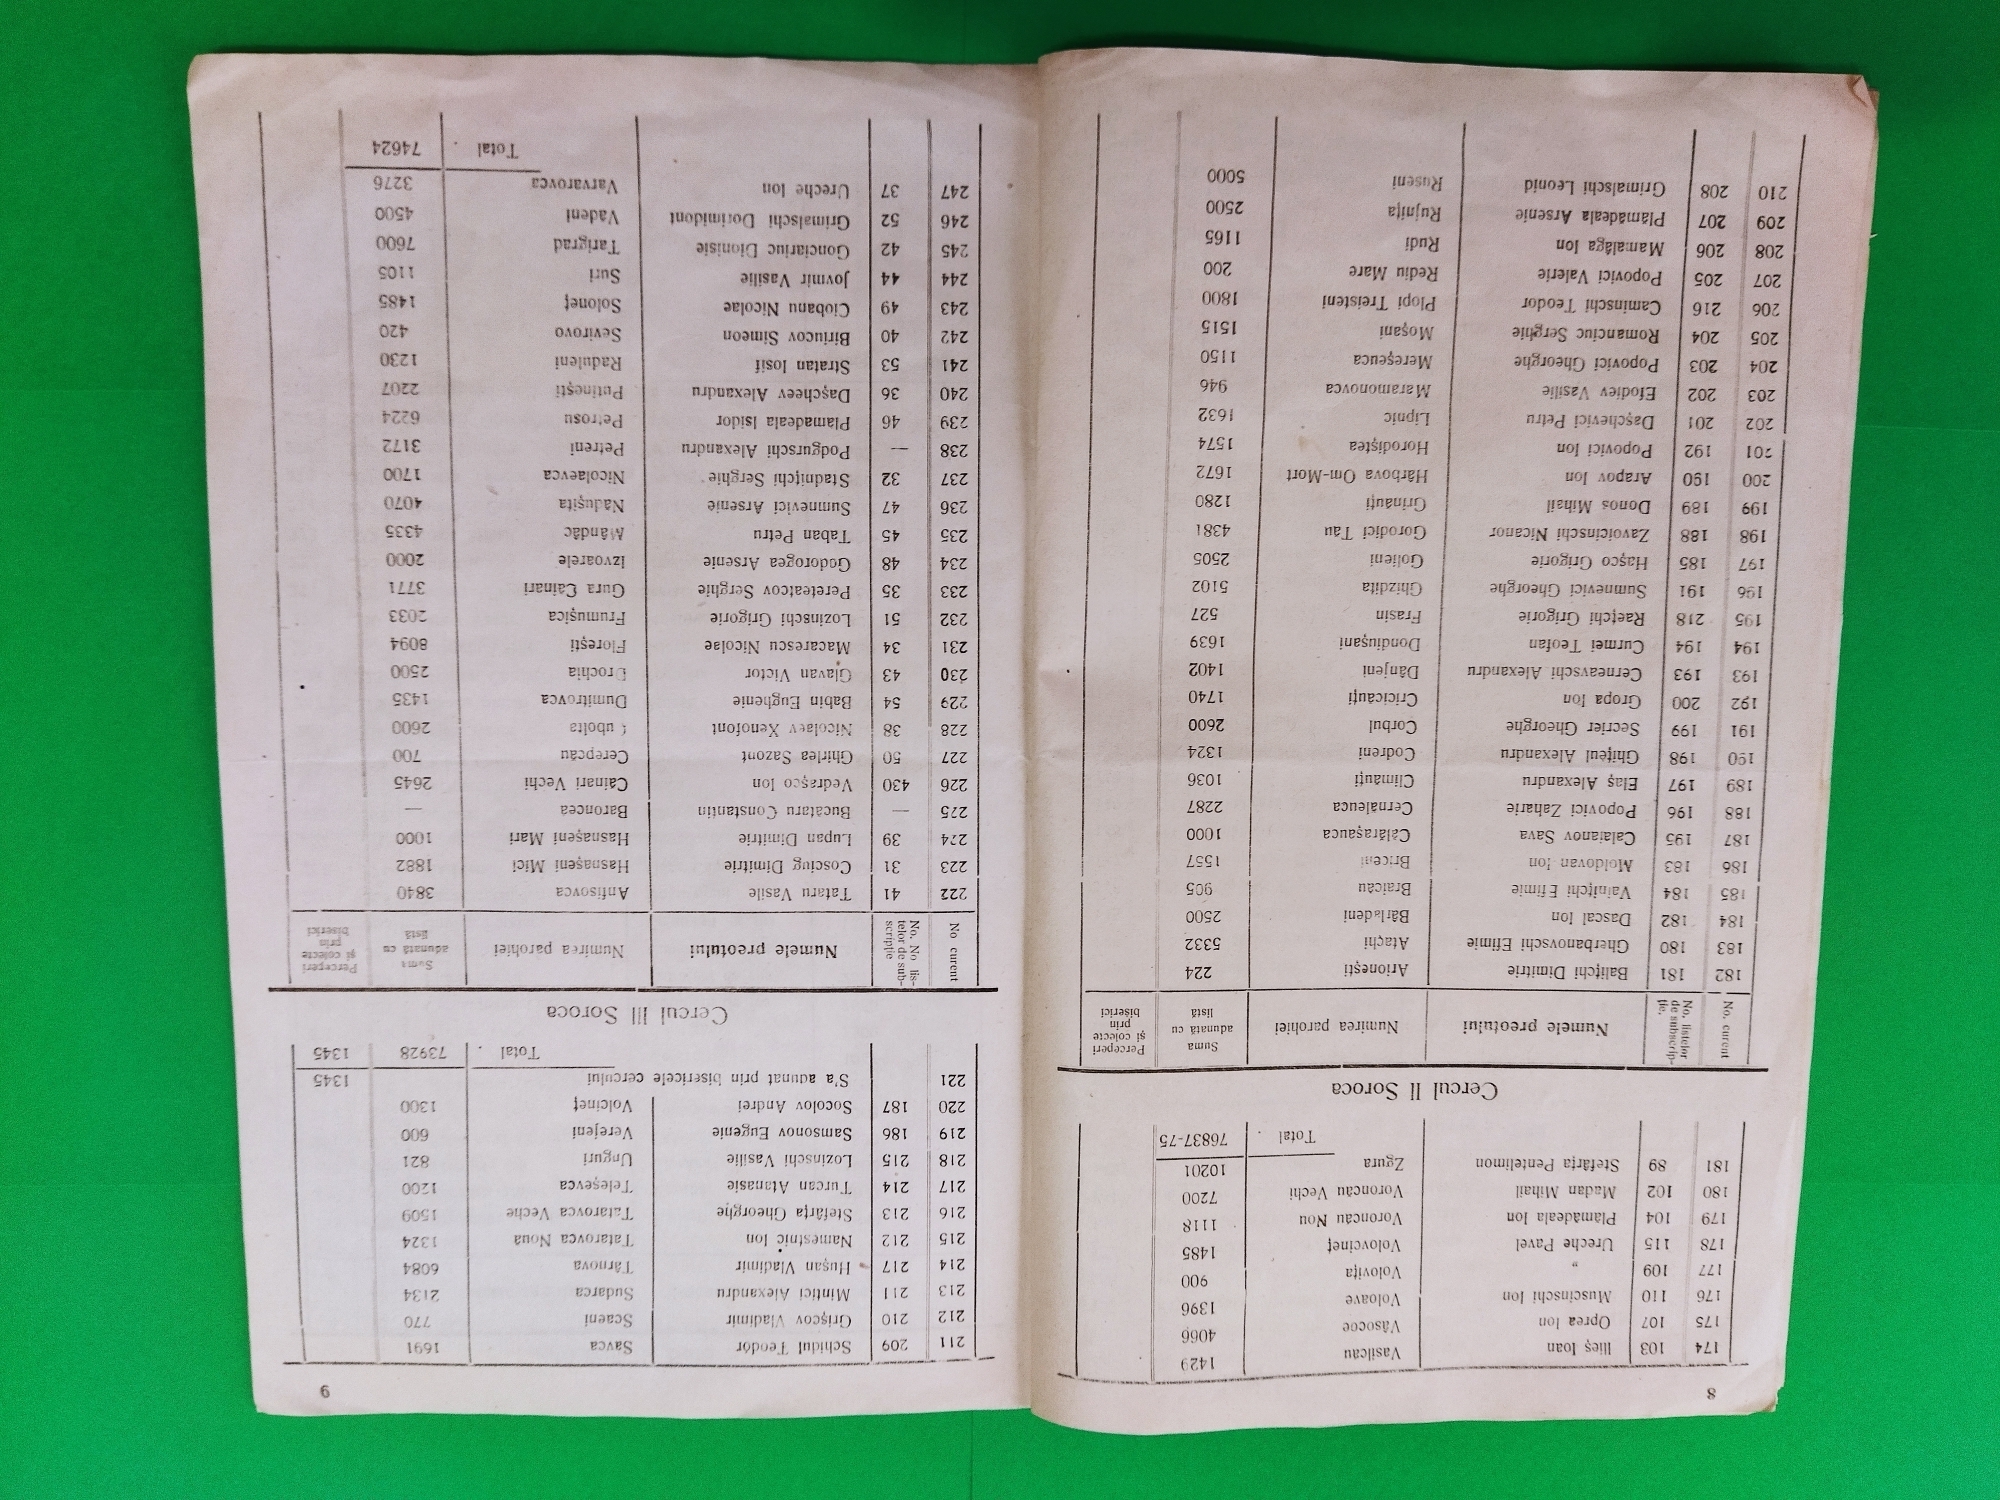 8
174 103 Ilieş Ioan Vasilcau 1429
175 107 Oprea Ion Văsocoe 4066
176 110 Muscinschi Ion Voloave 1396
177 109 „ Voloviţa 900
178 115 Ureche Pavel Volovcineţ 1485
179 104 Plamădeala Ion Voroncău Nou 1118
180 102 Madan Mihail Voroncău Vechi 7200
181 89 Stefârţa Pentelimon Zgura 10201
Total . 76837-75
Cercul II Soroca
No. curent No. listelor de subscrip-ţie. Numele preotului Numirea parohiei Suma adunată cu listă Perceperi şi colecte prin biserici
182 181 Baliţchi Dimitrie Arioneşti 224
183 180 Gherbanovschi Efimie Ataçhi 5332
184 182 Dascal Ion Bârladeni 2500
185 184 Vainiţchi Efimie Braicău 905
186 183 Moldovan Ion Briceni 1557
187 195 Calaianov Sava Călăraşauca 1000
188 196 Popovici Zaharie Cernăleuca 2287
189 197 Elaş Alexandru Climăuţi 1036
190 198 Ghiţeţul Alexandru Codreni 1324
191 199 Secrier Gheorghe Corbul 2600
192 200 Gropa Ion Cricicăuţi 1740
193 193 Cerneavschi Alexandru Dânjeni 1402
194 194 Curmei Teofan Dondiuşani 1639
195 218 Raeţchi Grigorie Frasin 527
196 191 Sumnevici Gheorghe Ghizdita 5102
197 185 Haşco Grigorie Golieni 2505
198 188 Zavoicinschi Nicanor Gorodici Tau 4381
199 189 Donos Mihail Grinăuţi 1280
200 190 Arapov Ion Hârbova Om-Mort 1672
201 192 Popovici Ion Horodiştea 1574
202 201 Daşchevici Petru Lipnic 1632
203 202 Efodiev Vasilie Maramonovca 946
204 203 Popovici Gheorghe Mereşeuca 1150
205 204 Romanciuc Serghie Moşani 1515
206 216 Caminschi Teodor Plopi Treisteni 1800
207 205 Popovici Valerie Rediu Mare 200
208 206 Mamalâga Ion Rudi 1165
209 207 Plamădeala Arsenie Rujniţa 2500
210 208 Grimalschi Leonid Ruseni 5000
9
211 209 Schidul Teodor Savca 1691
212 210 Grişcov Vladimir Scaeni 770
213 211 Mintici Alexandru Sudarca 2134
214 217 Huşan Vladimir Târnova 6084
215 212 Namestnic Ion Tatarovca Nouă 1324
216 213 Stefârţa Gheorghe Tatarovca Veche 1509
217 214 Turcan Atanasie Teleşevca 1200
218 215 Lozinschi Vasilie Unguri 821
219 186 Samsonov Eugenie Verejeni 600
220 187 Socolov Andrei Volcineţ 1300
221 S'a adunat prin bisericele cercului 1345
Total . 73928 1345
Cercul III Soroca
No curent No. No lis-telor de sub-scripţie Numele preotului Numirea parohiei Suma adunată cu listă Perceperi şi colecte prin biserici
222 41 Tataru Vasile Anfisovca 3840
223 31 Cosciug Dimitrie Hasnaşeni Mici 1882
224 39 Lupan Dimitrie Hasnaşeni Mari 1000
225 — Bucătaru Constantin Baroncea —
226 430 Vedraşco Ion Căinari Vechi 2645
227 50 Ghirlea Sazont Cerepcău 700
228 38 Nicolaev Xenofont ubolta 2600
229 54 Babin Eughenie Dumitrovca 1435
230 43 Glavan Victor Drochia 2500
231 34 Macarescu Nicolae Floreşti 8094
232 51 Lozinschi Grigorie Frumuşica 2033
233 35 Pereteatcov Serghie Gura Căinari 3771
234 48 Godorogea Arsenie Izvoarele 2000
235 45 Taban Petru Mândâc 4335
236 47 Sumnevici Arsenie Năduşita 4070
237 32 Stadniţchi Serghie Nicolaevca 1700
238 — Podgurschi Alexandru Petreni 3172
239 46 Plamadeala Isidor Petrosu 6224
240 36 Daşcheev Alexandru Putineşti 2207
241 53 Stratan Iosif Raduleni 1230
242 40 Biriucov Simeon Sevirovo 420
243 49 Ciobanu Nicolae Soloneţ 1485
244 44 Jovmir Vasilie Suri 1105
245 42 Gonciariuc Dionisie Tarigrad 7600
246 52 Grimalschi Dorimidont Vadeni 4500
247 37 Ureche Ion Varvarovca 3276
Total . 74624